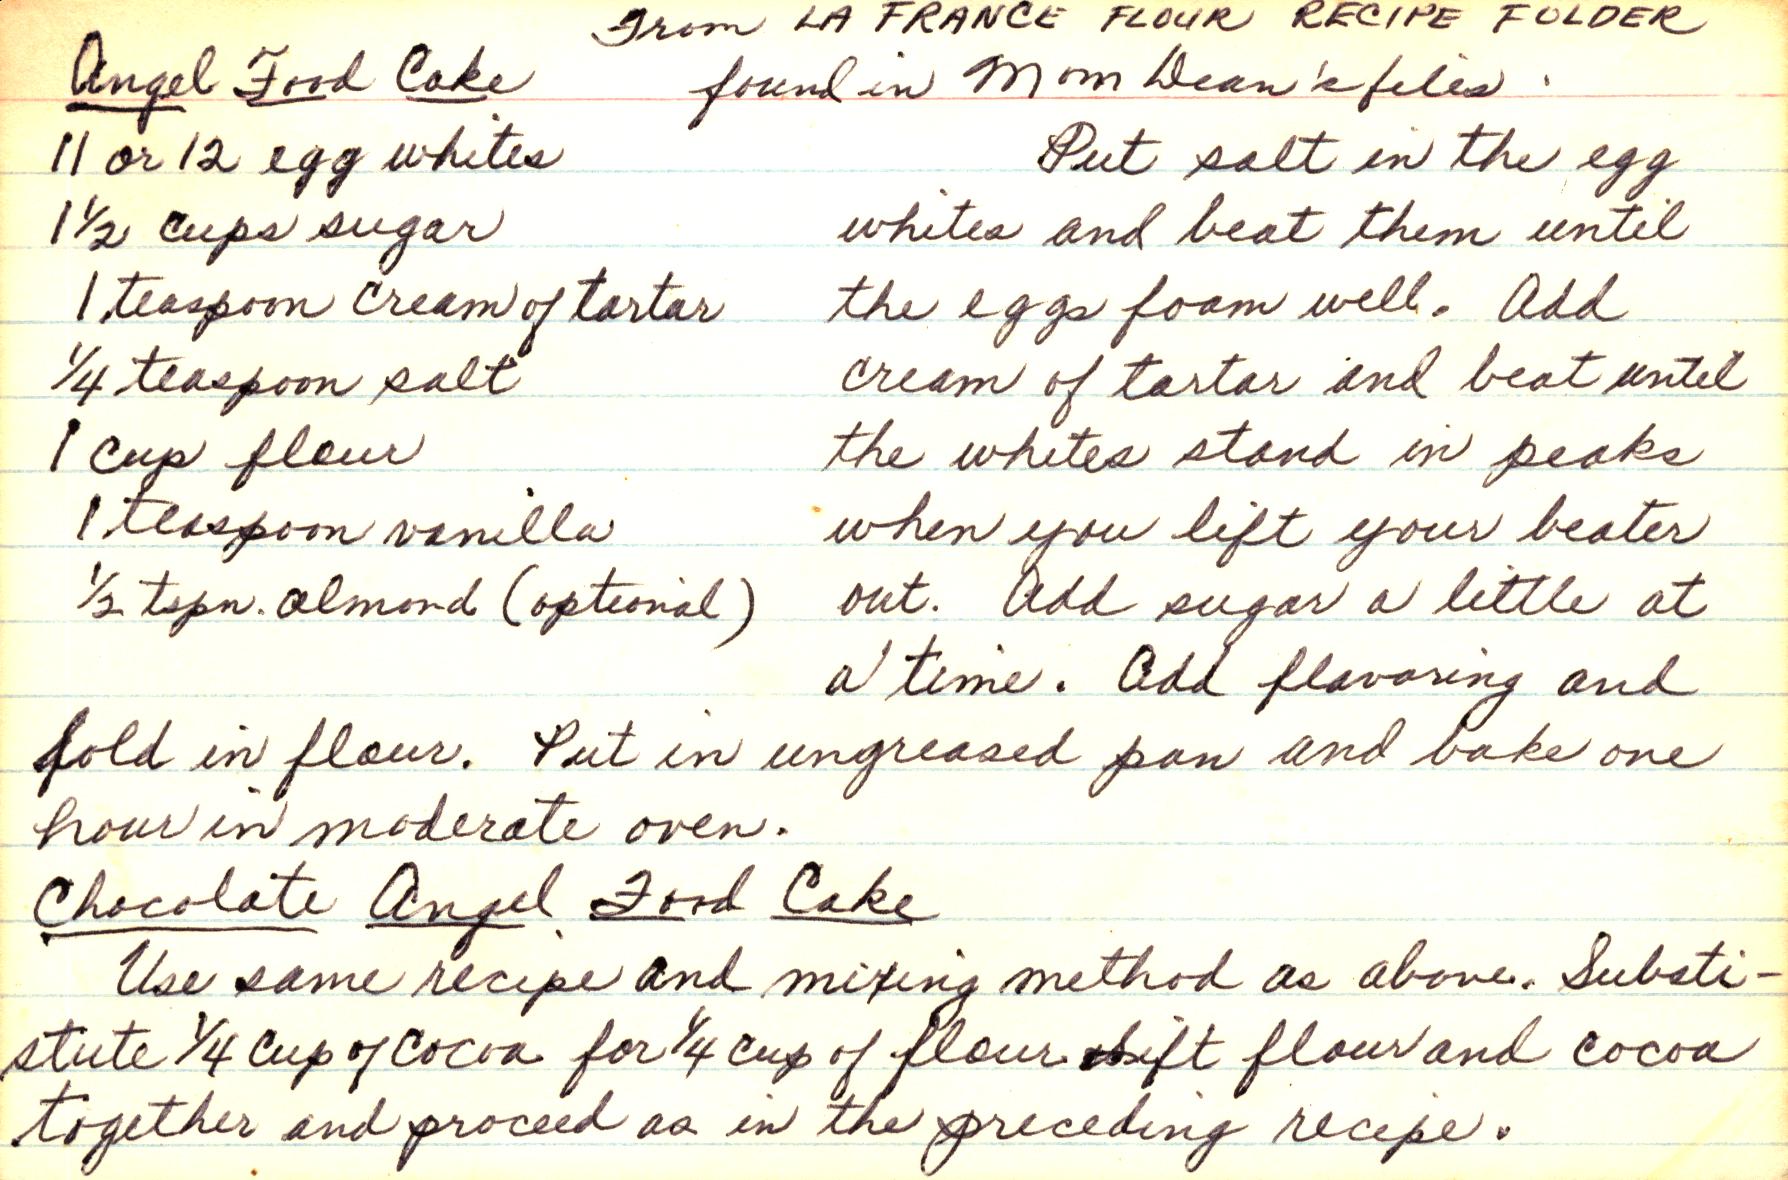 From LA FRANCE FLOUR RECIPE FOLDER
found in Mom Dean's files.
Angel Food Cake
11 or 12 egg whites
1 1/2 cups sugar
1 teaspoon cream of tartar
1/4 teaspoon salt
1 cup flour
1 teaspoon vanilla
1/2 tspn. almond (optional)
Put salt in the egg
whites and beat them until
the eggs foam well. Add
cream of tartar and beat until
the whites stand in peaks
when you lift your beater
out. Add sugar a little at
a time. Add flavoring and
fold in flour. Put in ungreased pan and bake one
hour in moderate oven.
Chocolate Angel Food Cake
Use same recipe and mixing method as above. Substi-
stute 1/4 cup of cocoa for 1/4 cup of flour sift flour and cocoa
together and proceed as in the preceding recipe.